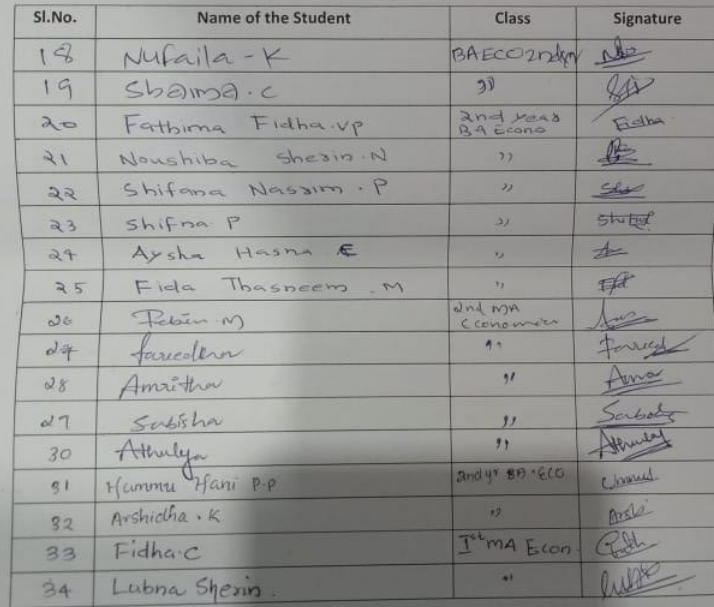 Sl.No. Name of the Student Class Signature
18 Nufaila - K BAECO2ndyr
19 Shaima.C ,,
20 Fathima Fidha.VP 2nd year BA Econo Fidha
21 Noushiba Sherin.N ,,
22 Shifana Nasrim.P ,,
23 Shifna P ,,
24 Aysha Hasna E ,,
25 Fida Thasneem.M ,,
26 M 2nd MA Economics
27 Fareedha ,, Fareed
28 Amritha ,,
27 Sabisha ,,
30 Athulya ,,
31 Hammu Hani P.P 2nd yr BA.ECO
32 Arshidha.K ,,
33 Fidha.C Ist MA Econ
34 Lubna Sherin. ,,